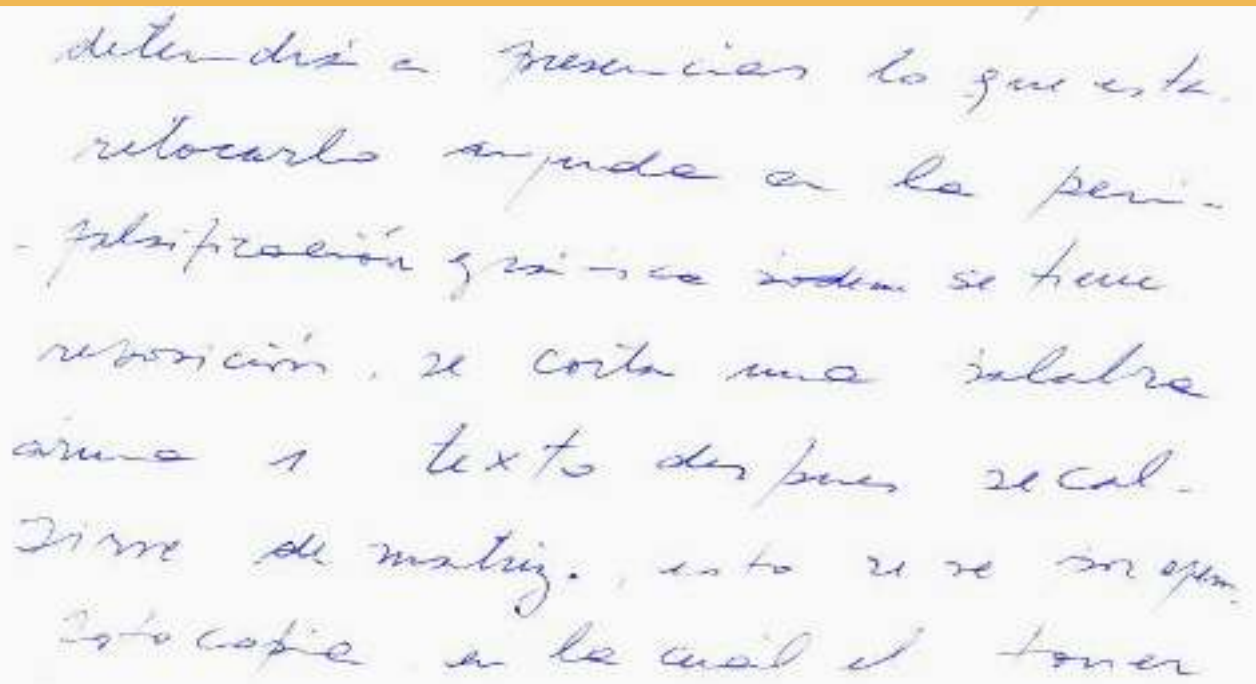 detendrá a presencias lo que esta
retocarlo ayuda en la peri-
falsificación se tiene
reposición, se corta una palabra
arma 1 texto despues recal-
sirve de matriz., esto se ve por ejem.
fotocopia en la cuál el toner